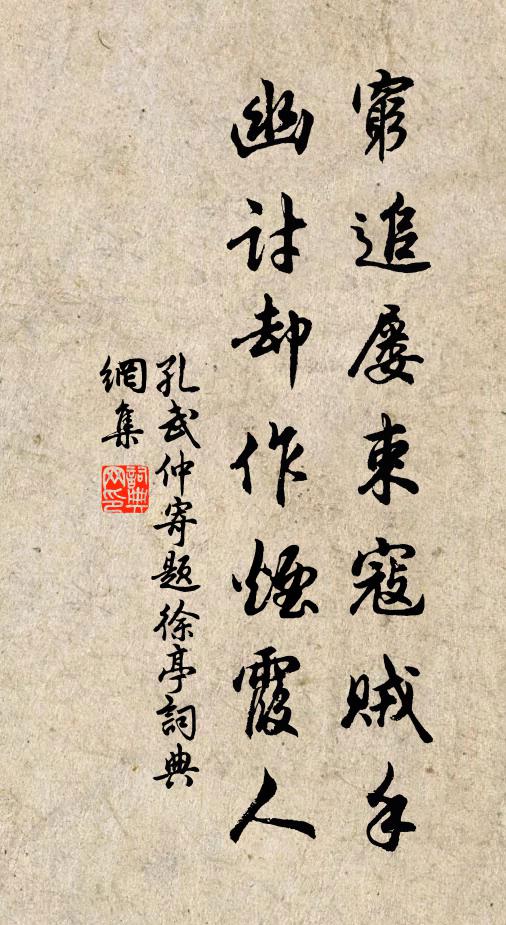 窮追屢束寇賊手
幽討却作煙霞人
孔武仲寄題徐亭詞典
網集
詞典
网印